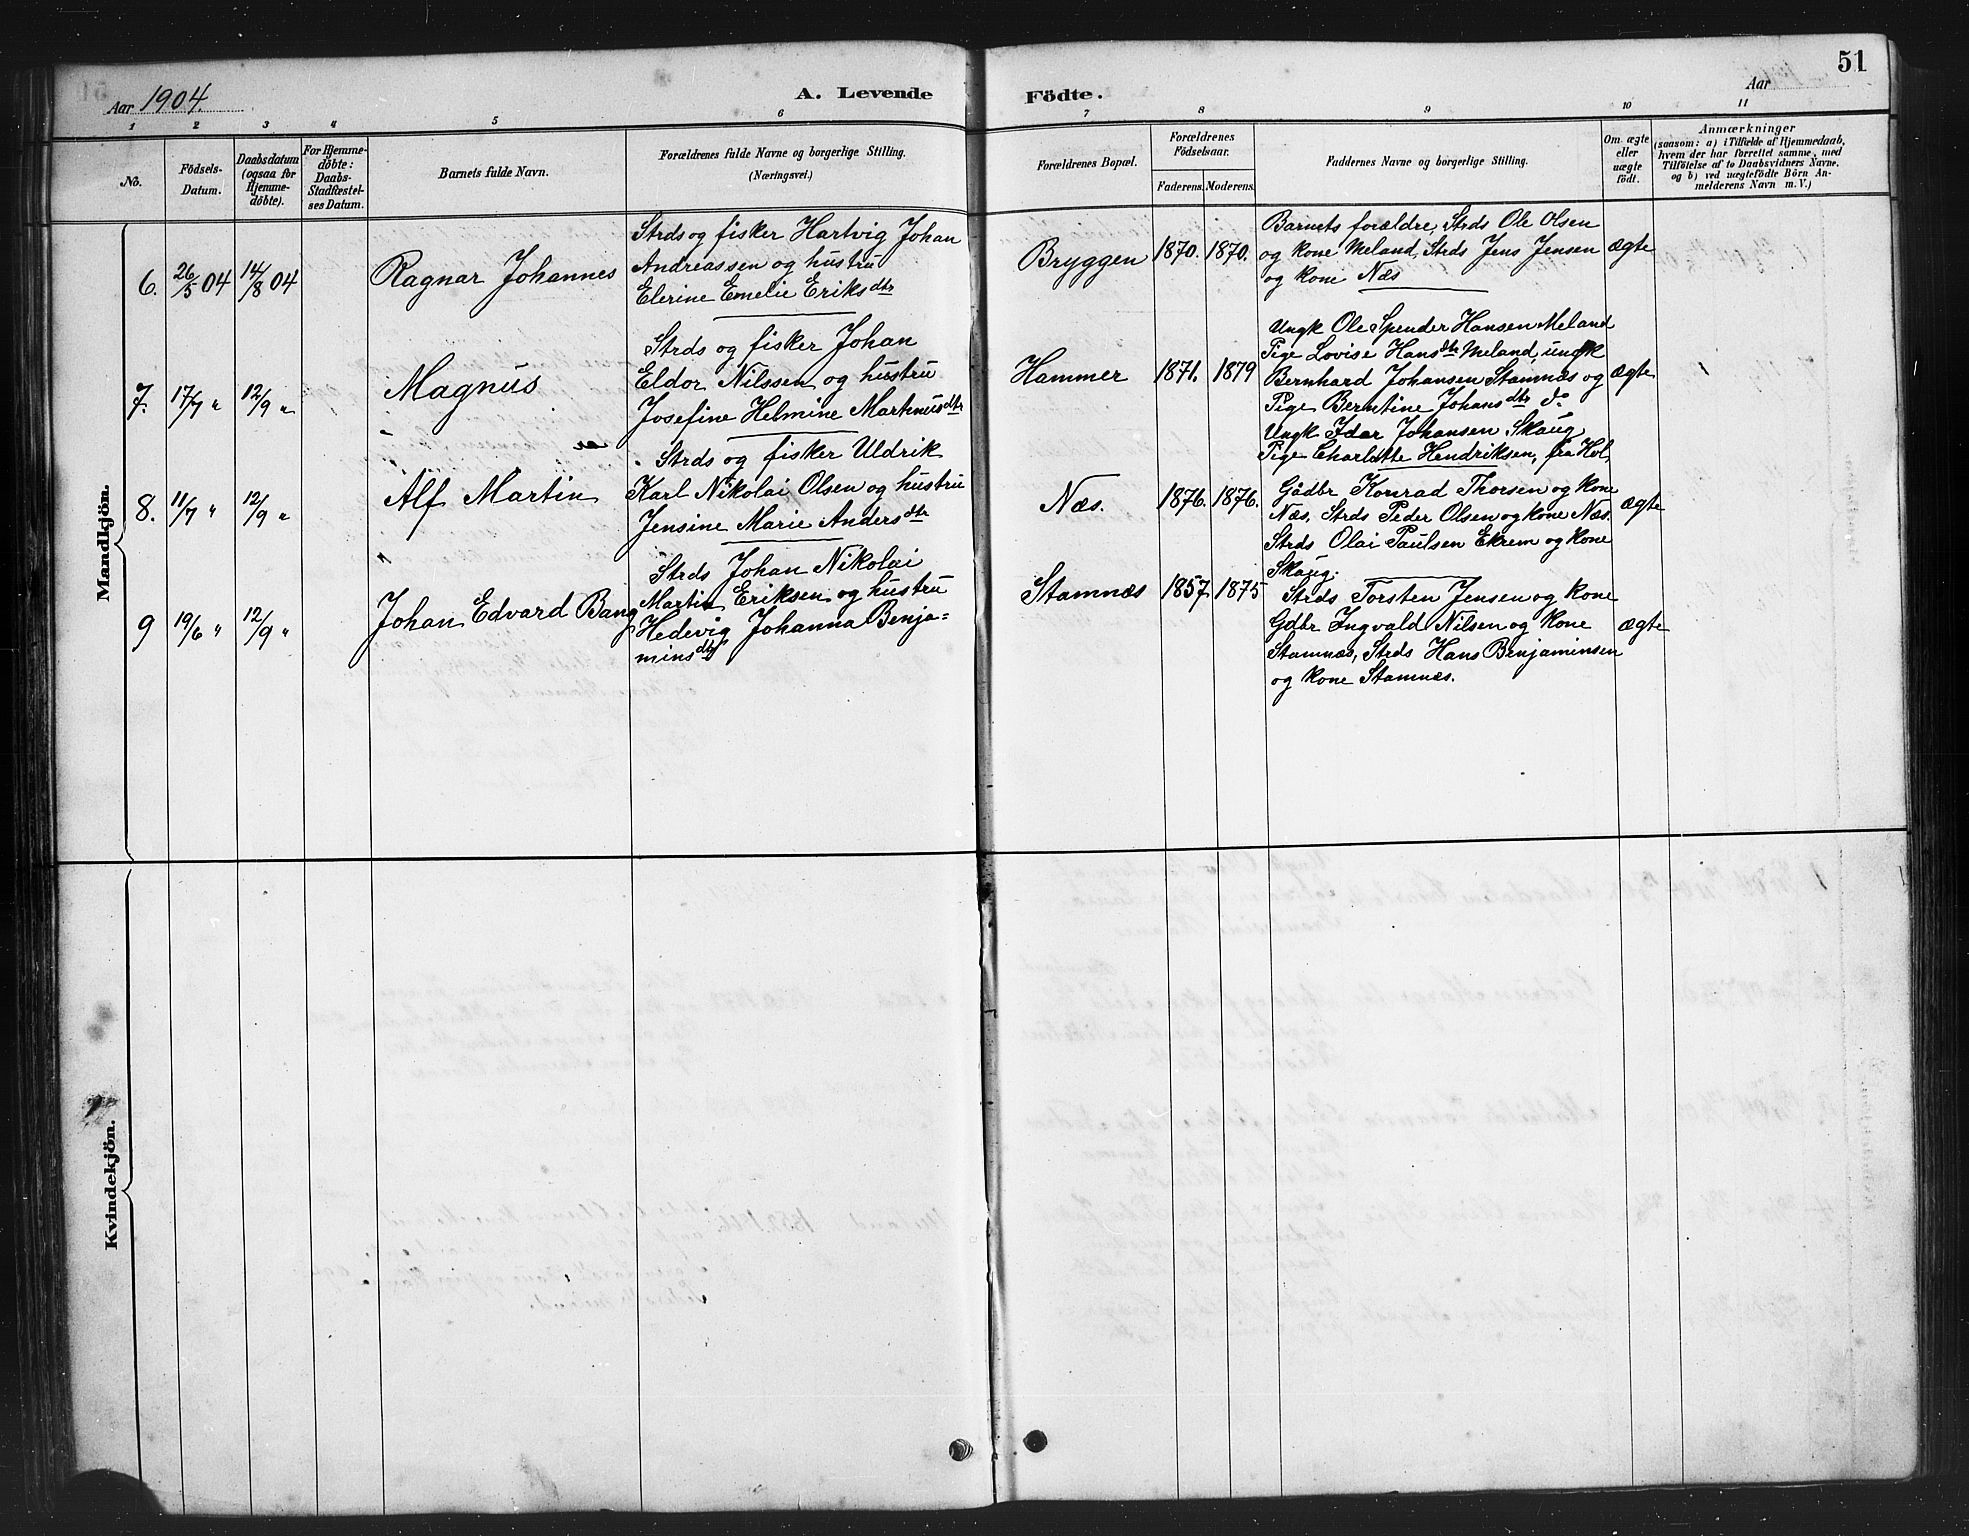 51
Aar 1904.
A. Levende Födte.
Aar
1 2 3 4 5 6 7 8 9 10 11
No.
Födsels-
Datum.
Daabsdatum
(ogsaa for
Hjemme-
döbte).
For Hjemme-
döbte:
Daabs-
Stadfæstel-
ses Datum.
Barnets fulde Navn.
Forældrenes fulde Navne og borgerlige Stilling.
(Næringsvei.)
Forældrenes Bopæl.
Forældrenes
Födselsaar.
Faderens. Moderens.
Faddernes Navne og borgerlige Stilling.
Om ægte
eller
uægte
födt.
Anmærkninger
(saasom: a) i Tilfælde af Hjemmedaab,
hvem der har forrettet samme, med
Tilföielse af to Daabsvidners Navne.
og b) ved uægtefödte Börn An-
melderens Navn m. V.)
Mandkjön.
6. 26/5 04 14/8 04 Ragnar Johannes
Strds og fisker Hartvig Johan
Andreassen og hustru
Elerine Emelie Eriksdtr
Bryggen 1870. 1870.
Barnets forældre, Strds Ole Olsen
og kone Meland, Strds Jens Jensen
og kone Næs
ægte
7. 17/7 " 12/9 " Magnus
Strds og fisker Johan
Eldor Nilssen og hustru
Josefine Helmine Martinusdtr
Hammer 1871. 1879
Ungk Ole Spender Hansen Meland
Pige Lovise Hansdtr Meland, ungk
Bernhard Johansen Stamnæs og
Pige Berntine Johansdtr do
Ungk Idar Johansen Skaug
Pige Charlotte Hendriksen, fra Hol.
ægte
8. 11/7 " 12/9 " Alf Martin
Strds og fisker Uldrik
Karl Nikolai Olsen og hustru
Jensine Marie Andersdtr
Næs. 1876. 1876.
Gådbr Konrad Thorsen og kone
Næs, Strds Peder Olsen og kone Næs.
Strds Olai Paulsen Ekrem og kone
Skaug.
ægte
9 19/6 " 12/9 " Johan Edvard Bang
Strds Johan Nikolai
Martin Eriksen og hustru
Hedevig Johanna Benja-
minsdtr
Stamnæs 1857 1875
Strds Torsten Jensen og kone
Gdbr Ingvald Nilsen og kone
Stamnæs, Strds Hans Benjaminsen
og kone Stamnæs.
ægte
Kvindekjön.